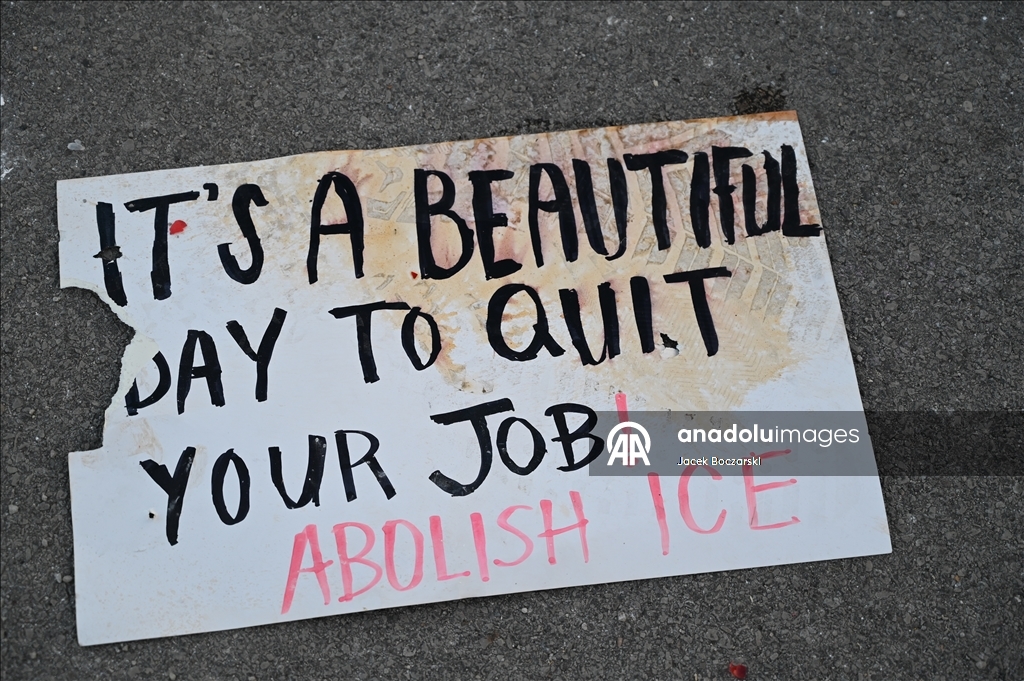 IT'S A BEAUTIFUL
DAY TO QUIT
YOUR JOB!
ABOLISH ICE
AA
anadoluimages
Jacek Boczarski